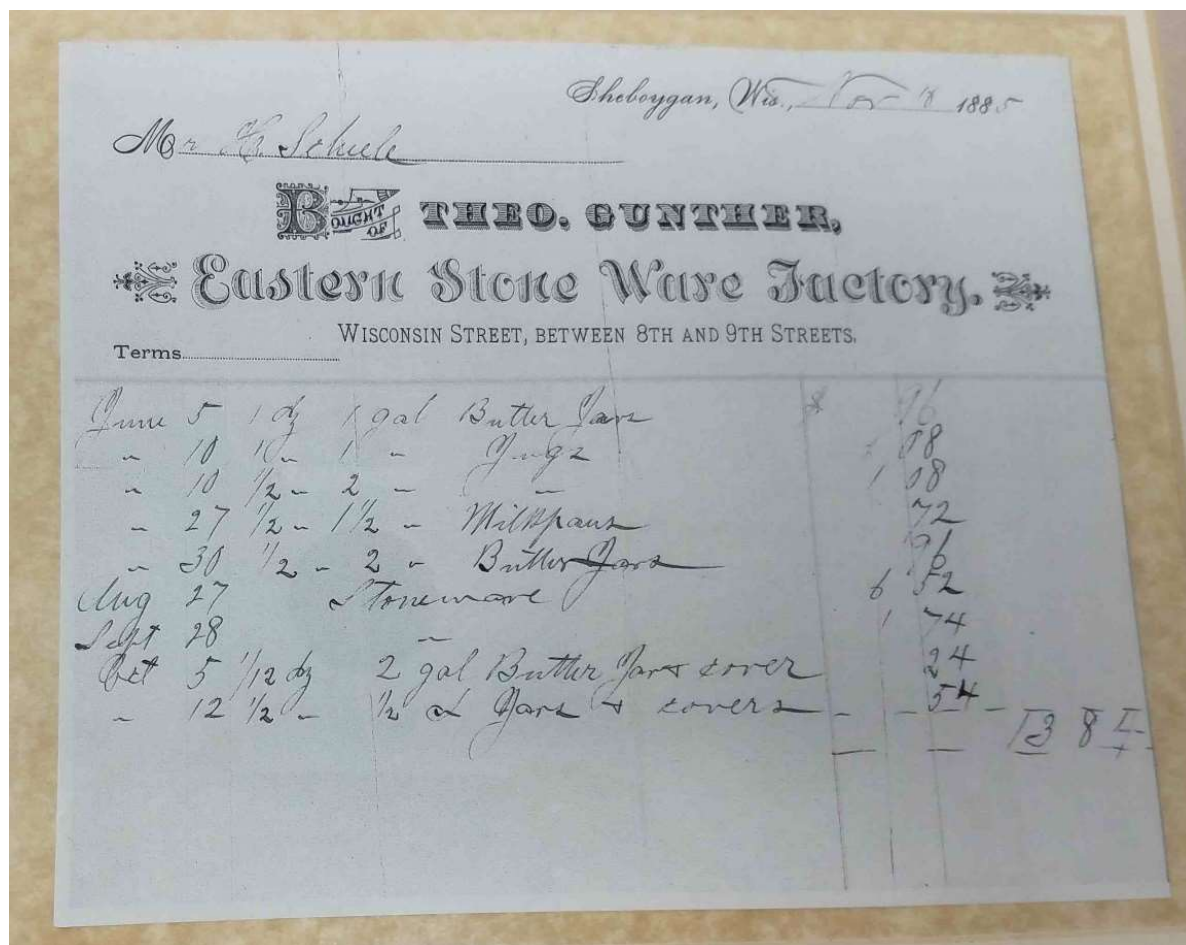 Sheboygan, Wis., Nov 1885
Mr H. Schuele
BOUGHT OF THEO. GUNTHER,
Eastern Stone Ware Factory.
WISCONSIN STREET, BETWEEN 8TH AND 9TH STREETS.
Terms
June 5 1 dz 1 gal Butter Jars $ 96
" 10 1 " 1 " Jugs 1 08
" 10 1/2 " 2 " " 1 08
" 27 1/2 " 1 1/2 " Milkpans 72
" 30 1/2 " 2 " Butter Jars 96
Aug 27 Stoneware 6 52
Sept 28 " 1 74
Oct 5 1/12 dz 2 gal Butter Jar & cover 24
" 12 1/2 " 1/2 Jars & covers 54
13 84